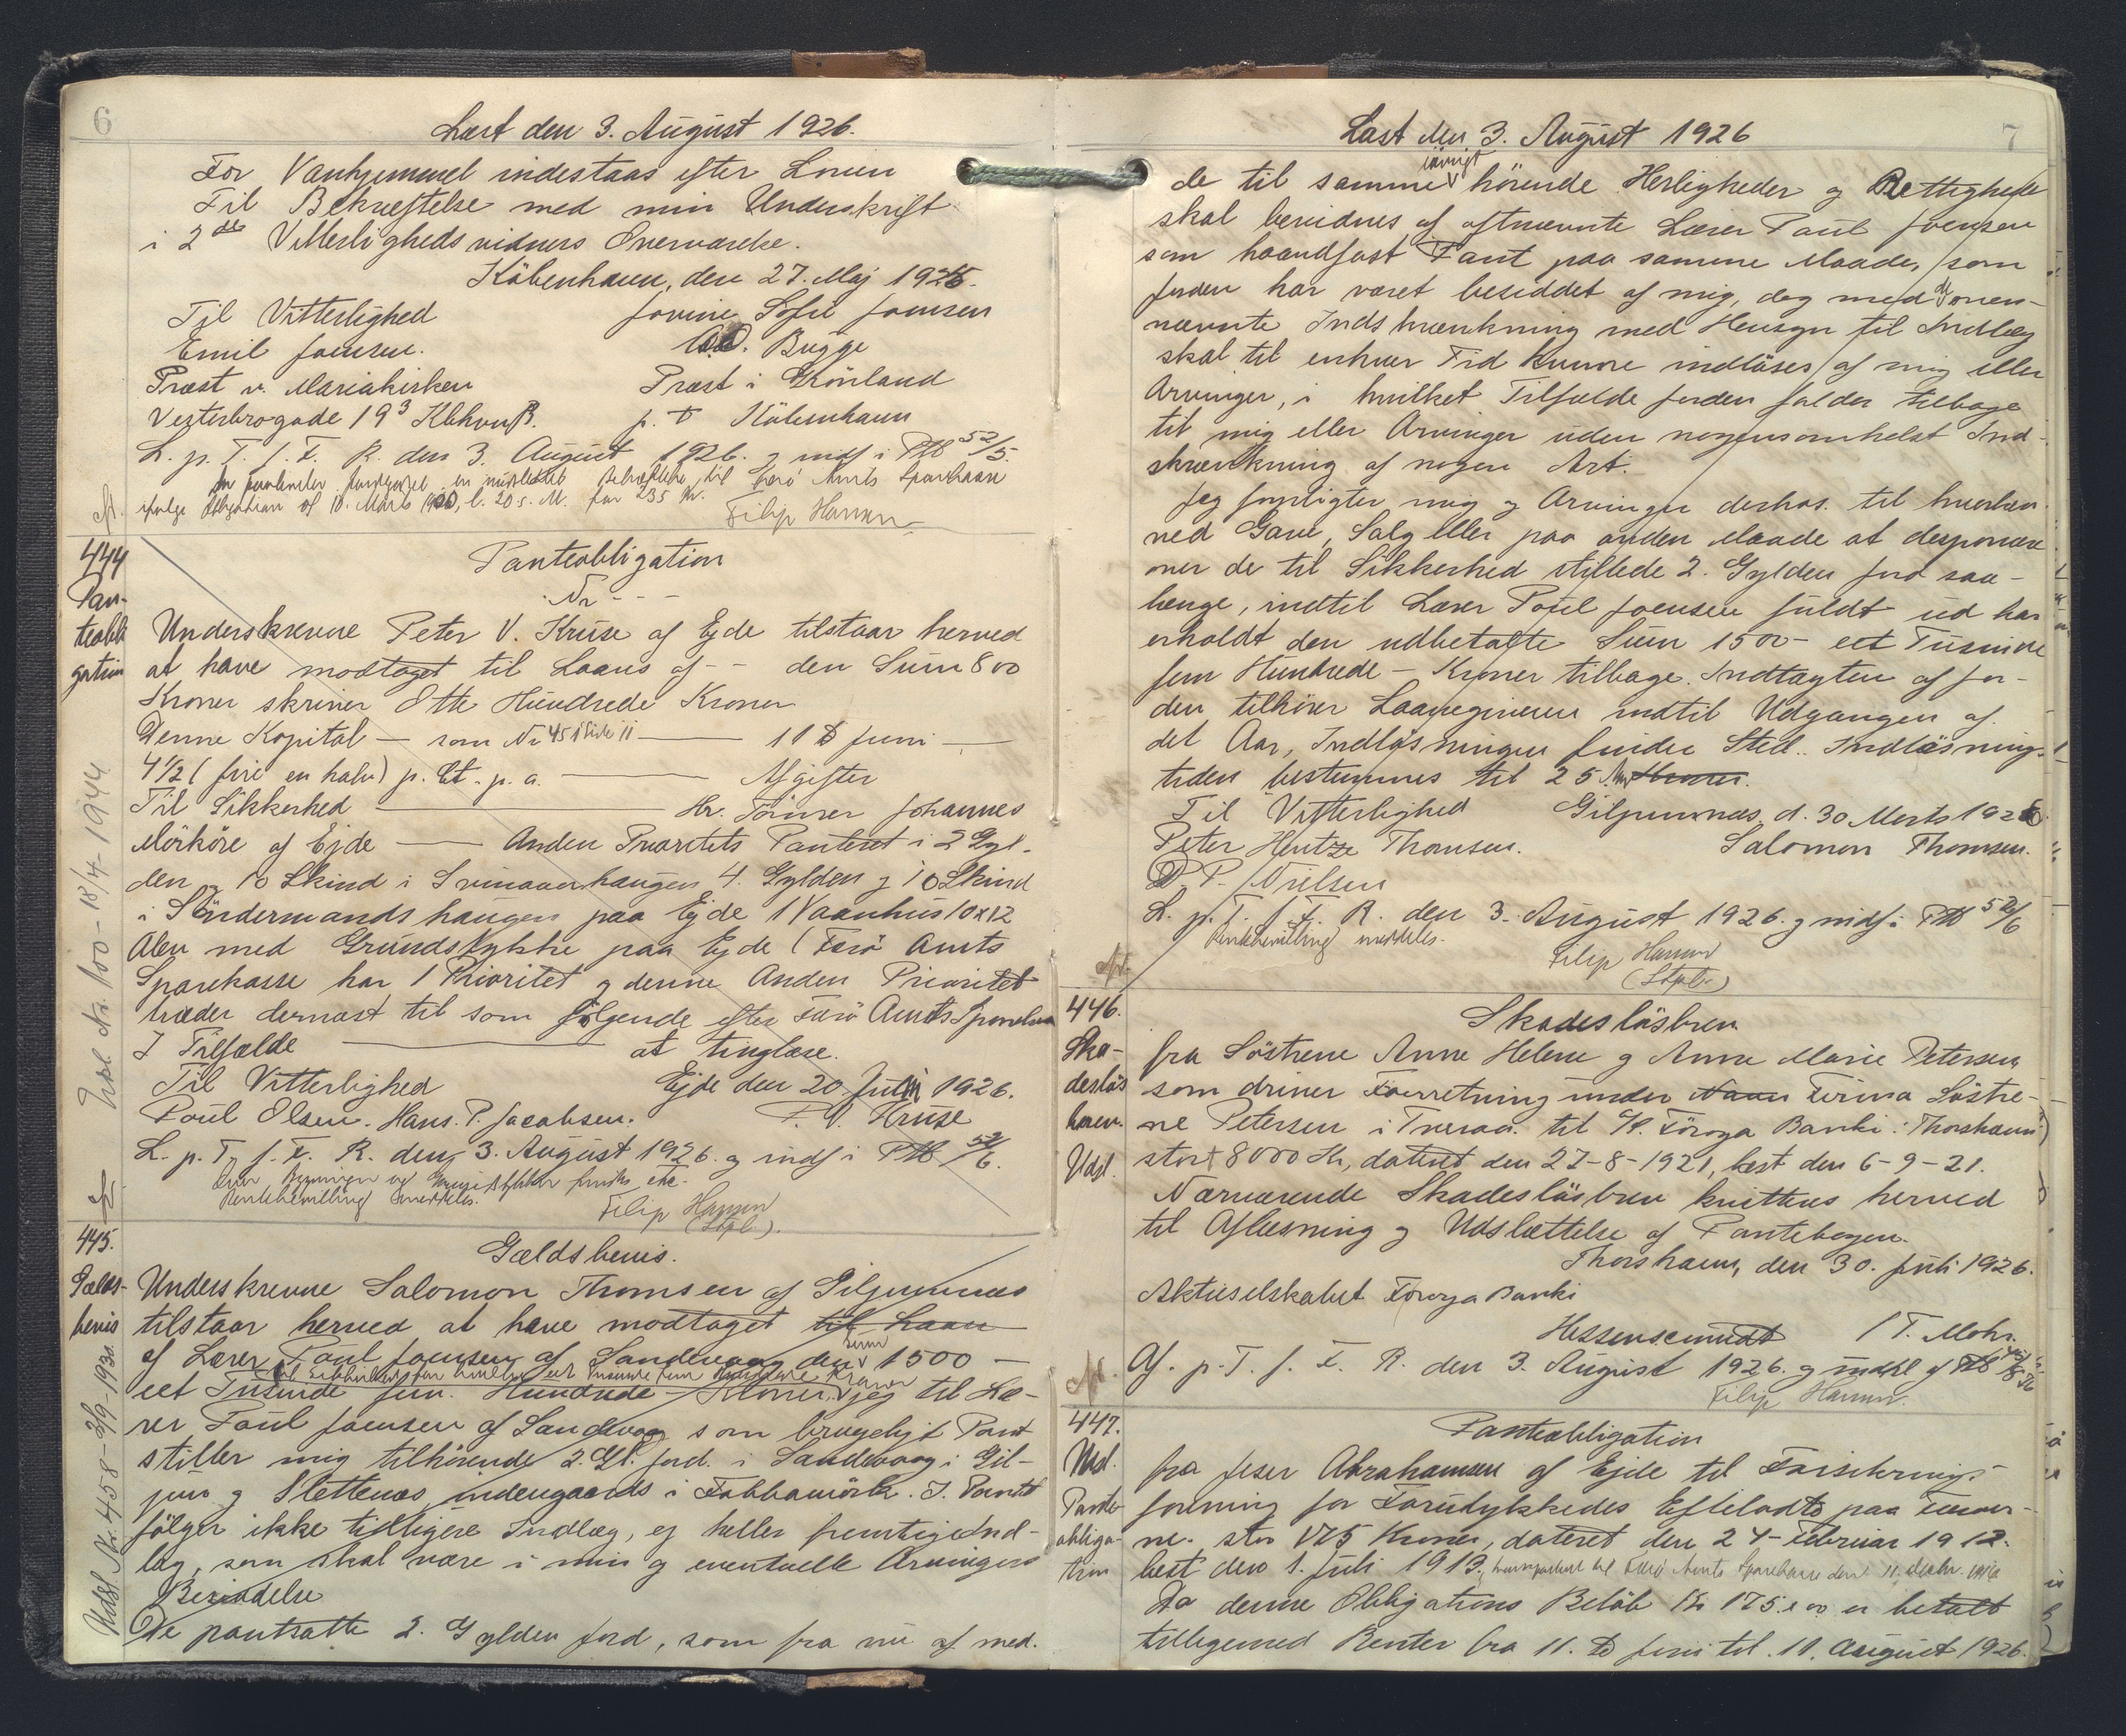 6
Læst den 3. August 1926.
For Vanhjemmel indestaas efter Loven
Til Bekræftelse med min Underskrift
i 2de Vitterlighedsvidners Overværelse.
København, den 27. Maj 1926.
Til Vitterlighed
Jovine Sofie Joensen
Emil Joensen.
Bugge
Præst v. Mariakirken
Præst i Grönland
Vesterbrogade 19³ Kbhvn B.
p. t. København
L. p. T. f. F. R. den 3. August 1926. og indf i PtB 52/5.
til Færö Amts Sparekasse
ifølge Obligation af 10. Marts l. 20 s. M. for 235 Kr.
Filip Hansen
444
Pan-
teobli
gation
Panteobligation
Nr - - -
Underskrevne Peter V. Kruse af Ejde tilstaar herved
at have modtaget til Laans af - - den Sum 800
Kroner skriver Otte Hundrede Kroner
Denne Kapital — som Nr 451 Side 11 — 11 D Juni —
4 1/2 (fire en halv) p. Ct. p. a. — Afgifter
Til Sikkerhed — Hr. Tömrer Johannes
Mörköre af Ejde — Anden Prioritets Panteret i 2 Gyl-
den og 10 Skind i Svinaaerhaugen 4. Gylden og 10 Skind
i Söndermandshaugen paa Ejde 1 Vaanhus 10x12
Alen med Grundstykke paa Ejde (Færö Amts
Sparekasse har 1 Prioritet og denne Anden Prioritet
træder dernæst til som følgende efter Færö Amts Sparekasse
I Tilfælde — at tinglæse.
Til Vitterlighed
Ejde den 20. Juli 1926.
Poul Olsen. Hans. P. Jacobsen.
P. V. Kruse
L. p. T. f. F. R. den 3. August 1926. og indf i PtB 52/6.
Over Bygninger og Grundstykker findes etc.
Rentebevilling meddeles.
Filip Hansen
(Stpl.)
Udsl. Nr. 100 - 18/4 - 1944
445.
Gælds-
bevis
Gældsbevis.
Underskrevne Salomon Thomsen af Giljumnæs
tilstaar herved at have modtaget til Laan
af Lærer Poul Joensen af Sandevaag den Sum 1500 —
eet Tusinde fem Hundrede Kroner
eet Tusinde fem Hundrede — Kroner, jeg til Læ-
rer Poul Joensen af Sandevaag som brugeligt Pant
stiller mig tilhörende 2. Gl. Jord. i Sandevaag i Gil-
jum og Slettenæs indengaards i Fabbamörk. I. Pantet
fölger ikke tidligere Indlæg, ej heller fremtige Ind-
læg, som skal være i min og eventuelle Arvingers
Besiddelse
De pantsatte 2. Gylden Jord, som fra nu af med.
Udsl. Nr. 458 - 2/9 - 1930.
7
Læst den 3. August 1926
de til samme övrigt hörende Herligheder og Rettigheder
skal benidnes af oftnævnte Lærer Poul Joensen
som haandfast Pant paa samme Maade, som
Jorden har været besiddet af mig, dog med d. oven-
nævnte Indskrænkning med Hensyn til Indlæg
skal til enhver Tid kunne indlöses af mig eller
Arvinger, i hvilket Tilfælde Jorden falder tilbage
til mig eller Arvinger uden nogensomhelst Ind-
skrænkning af nogen Art.
Jeg forpligter mig og Arvinger derhos til hverken
ved Gave, Salg eller paa anden Maade at desponere
over de til Sikkerhed stillede 2. Gylden Jord saa-
længe, indtil Lærer Poul Joensen fuldt ud har
erholdt den udbetalte Sum 1500 - eet Tusinde
fem Hundrede - Kroner tilbage. Indtægten af Jor-
den tilhörer Laanegiveren indtil Udgangen af
det Aar, Indlösningen finder Sted. Indlösnings-
tiden bestemmes til 25 Aar
Til Vitterlighed
Giljumnæs d. 30 Marts 1926
Peter Hentze Thomsen.
Salomon Thomsen.
D. P. Nielsen
L. p. T. f. F. R. den 3. August 1926. og indf i PtB 52/6
Rentebevilling meddeles.
Filip Hansen
(Stpl.)
446.
Ska-
deslös
brev.
Udsl.
Skadeslösbrev
fra Söstrene Anne Helene og Anna Marie Petersen,
som driver Forretning under Navn Firma Söstre-
ne Petersen i Tveraa. til A/S. Föroya Banki. Thorshavn
stort 8000 Kr, dateret den 27-8-1921, læst den 6-9-21.
Nærværende Skadeslösbrev kvitteres herved
til Aflæsning og Udslættelse af Pantebogen.
Thorshavn, den 30. Juli 1926.
Aktieselskabet Föroya Banki
/ T. Mohr.
Af. p. T. f. F. R. den 3. August 1926. og udsl af PtB
Filip Hansen.
447.
Udsl.
Pante-
obliga-
tion
Panteobligation
fra Jeser Abrahamsen af Ejde til Forsikrings-
forening for Forulykkedes Efterladte paa Færöer-
ne. stor 175 Kroner, dateret den 24. Februar 1912.
læst den 1. Juli 1913, transporteret til Færö Amts Sparekasse den 11. Decbr. 1916
Da denne Obligations Belöb Kr 175.00 er betalt
tilligemed Renter fra 11. D Juni til 11. August 1926.